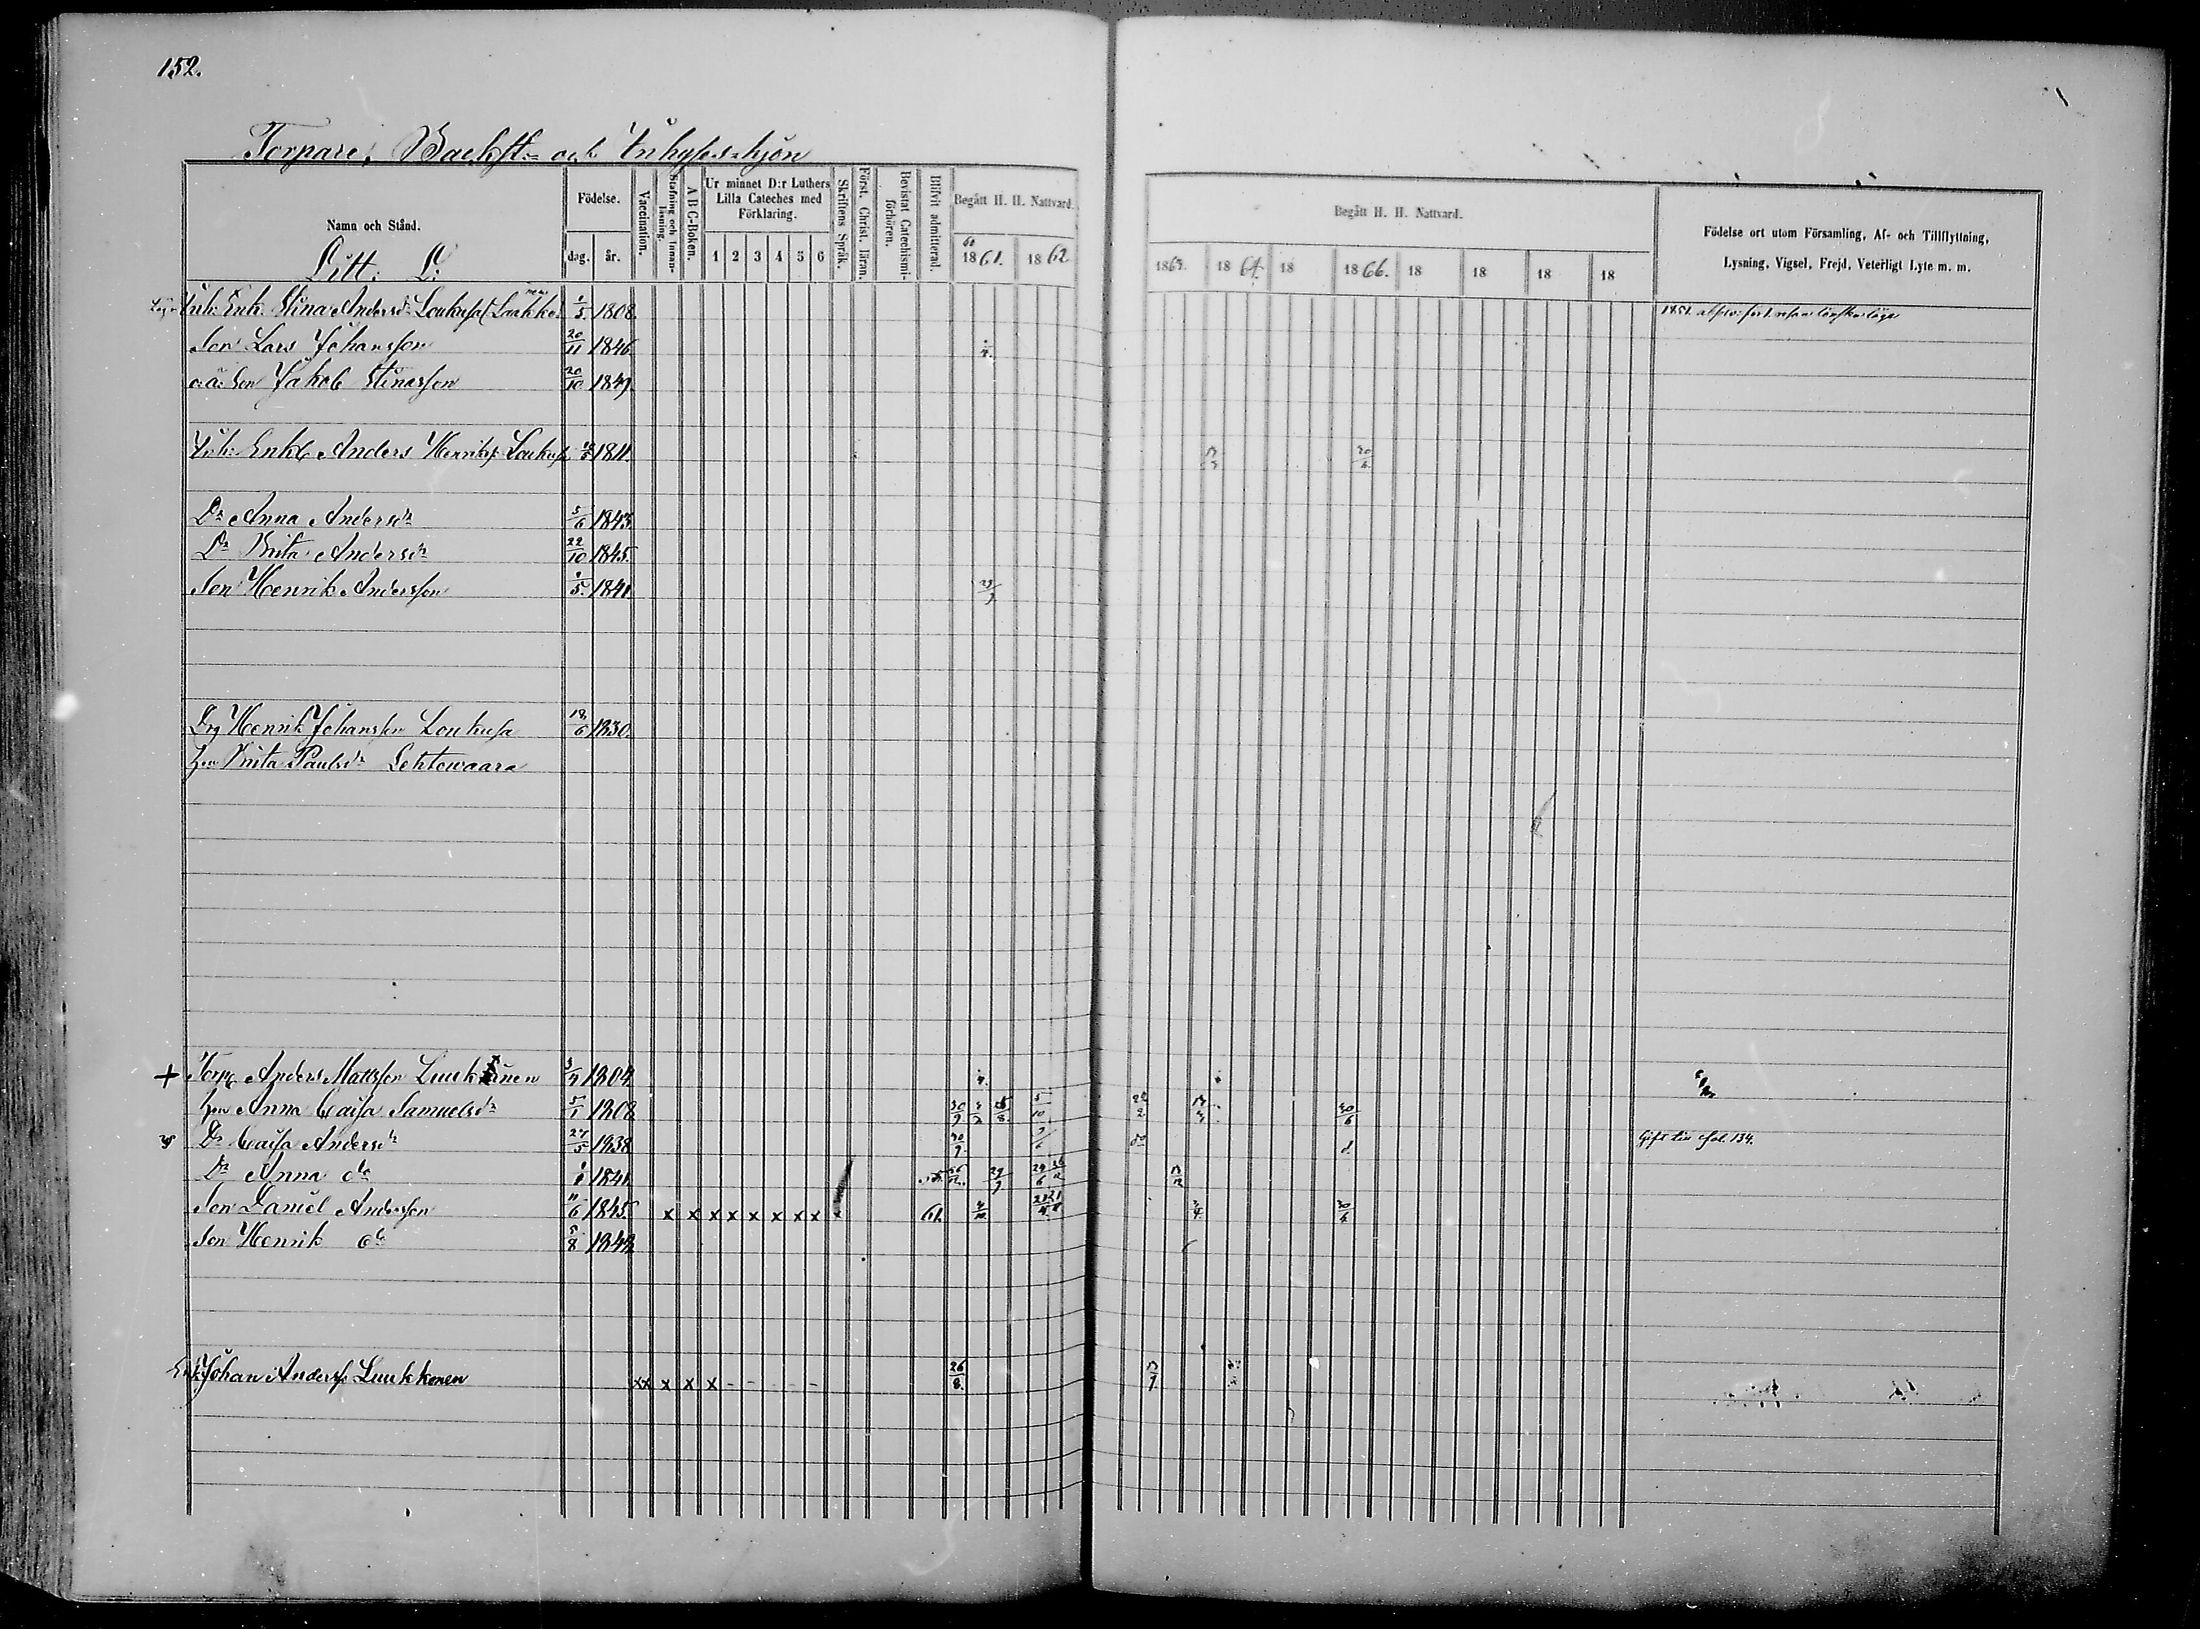 152.
Torpare, Backst. och Inhyses-hjon
Namn och Stånd.
Litt. L.
Födelse.
dag. år.
Vaccination.
Stafning och Innanläsning.
A B C-Boken.
Ur minnet D:r Luthers Lilla Cateches med Förklaring.
1 2 3 4 5 6
Skriftens Språk.
Först. Christ. läran.
Bevistat Catechismiförhören.
Blifvit admitterad.
Begått H. H. Nattvard.
1861. 1862
Begått H. H. Nattvard.
1863. 1864. 18 1866. 18 18 18 18
Födelse ort utom Församling, Af- och Tillflyttning,
Lysning, Vigsel, Frejd, Veterligt Lyte m. m.
Inh. Enk. Stina Andersdr Loukusa 1/5 1808. 1851.
Son Lars Johansson 20/11 1846
o. ä. Son Jakob Stinasson 20/10 1849.
Inh. Enkl. Anders Henriks. Loukusa 1811. 30/6
Dr Anna Andersdr 5/6 1843.
Dr Brita Andersdr 22/10 1845.
Son Henrik Andersson 1/5 1841
Drg Henrik Johansson Loukusa 18/6 1830.
hu Brita Paulsdr Lehtowaara
+ Torp. Anders Mattsson 3/4 1804.
hu Anna Caisa Samuelsdr 5/1 1808 30/9 5/10 30/6
Dr Caisa Andersdr 27/5 1838 30/9 do Gift till fol. 134.
Dr Anna do 1841
Son Daniel Andersson 11/6 1845. x x x x x x x x x 61. 30/6
Son Henrik do 5/8 1848
Johan Anderss. Luukkonen xx x x x - - - - 26/8.